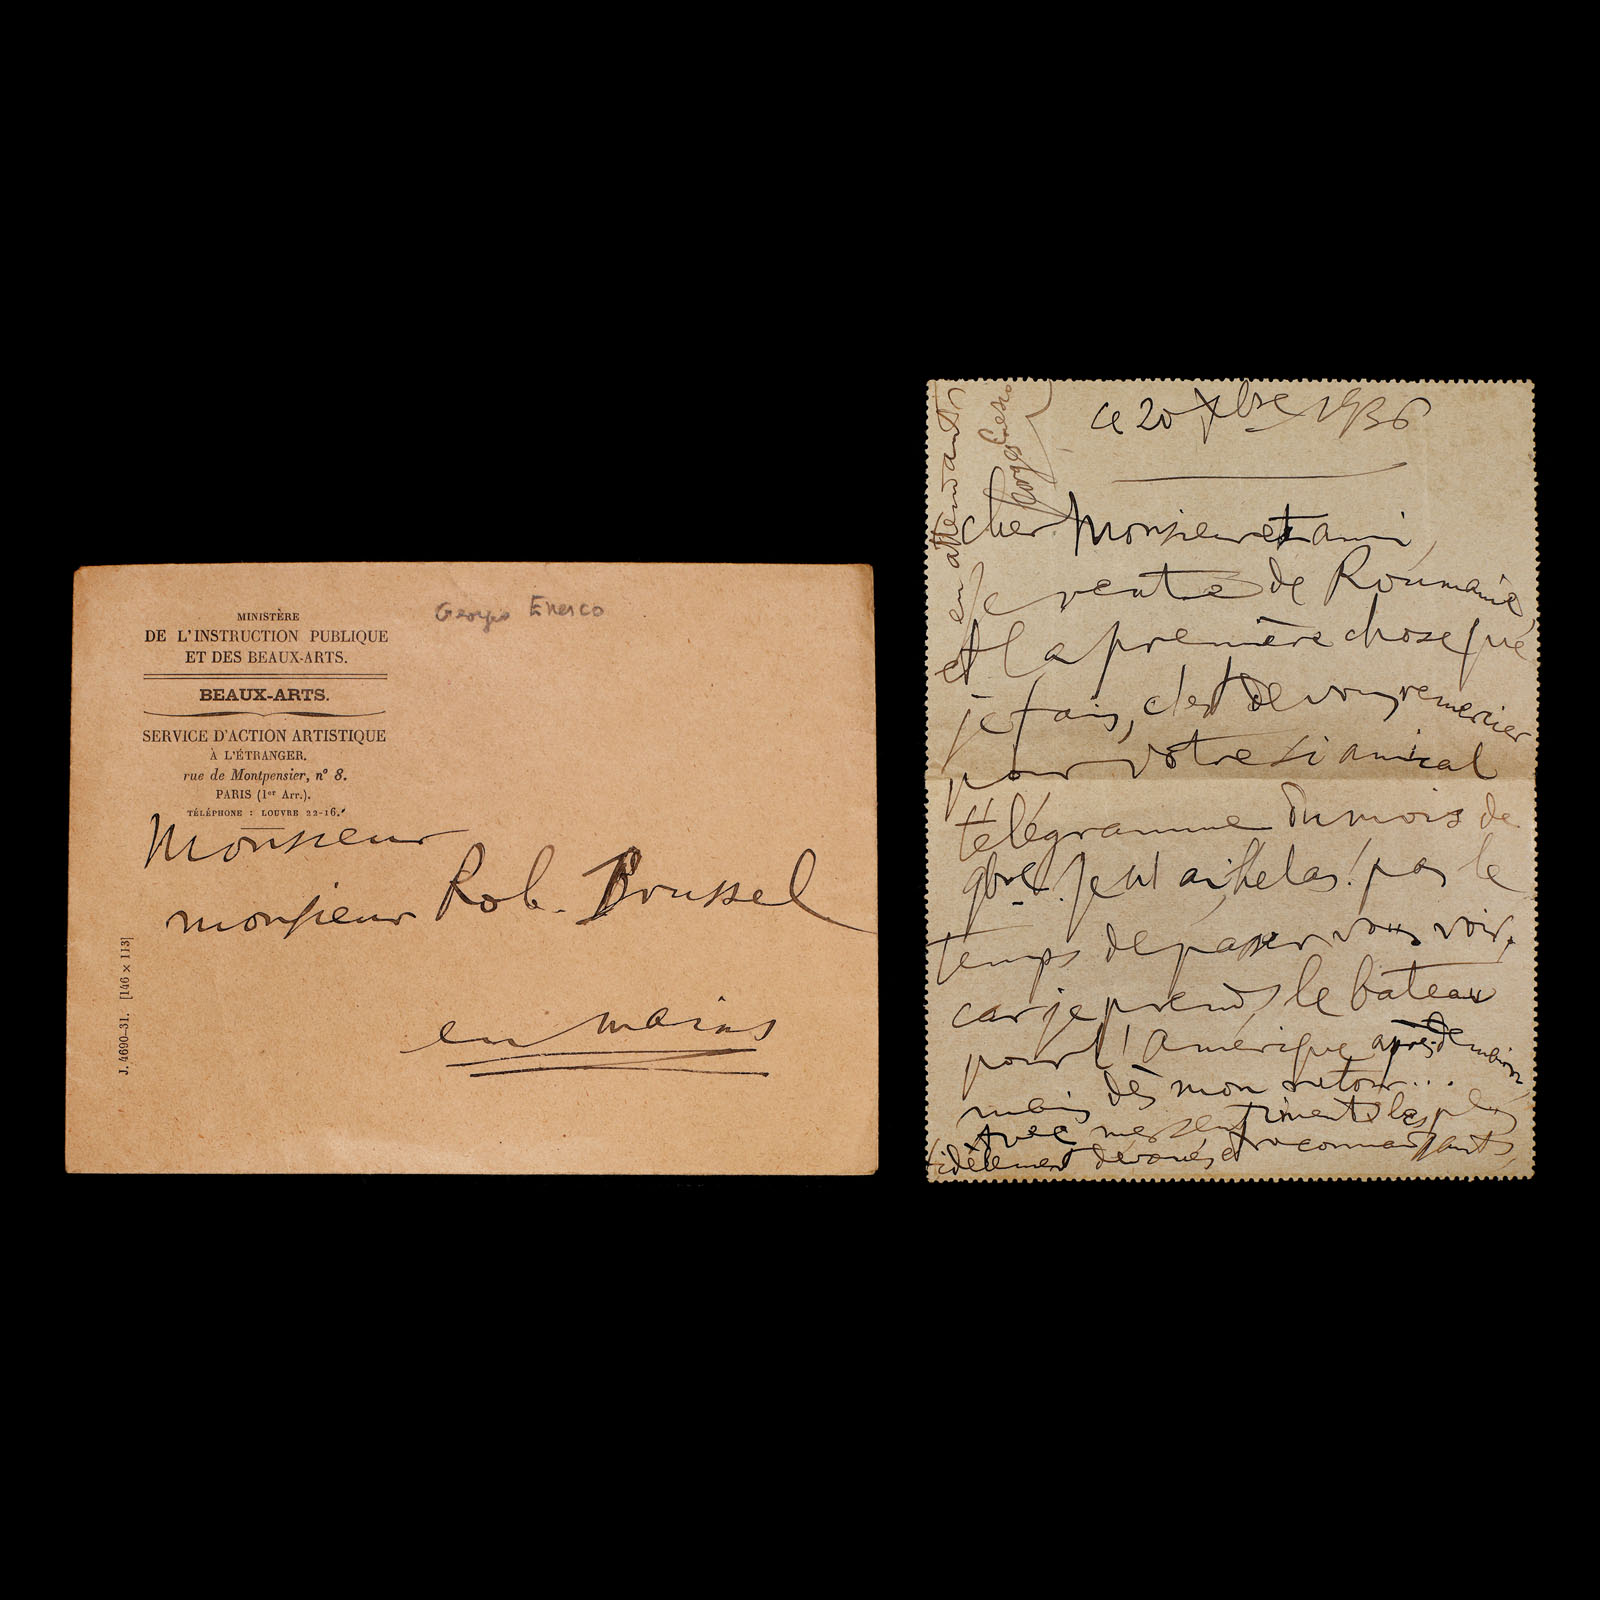 Georges Enesco
MINISTÈRE
DE L'INSTRUCTION PUBLIQUE
ET DES BEAUX-ARTS.
BEAUX-ARTS.
SERVICE D'ACTION ARTISTIQUE
À L'ÉTRANGER.
rue de Montpensier, n° 8.
PARIS (1er Arr.).
TÉLÉPHONE : LOUVRE 22-16.
Monsieur
monsieur Rob. Brussel
en mains
J. 4690-31. [146 × 113]
ce 20 Xbre 1936
cher Monsieur et ami,
Je rentre de Roumanie,
et la première chose que
je fais, c'est de vous remercier
pour votre si amical
télégramme du mois de
9bre. Je n'ai, hélas! pas le
temps de passer vous voir,
car je prends le bateau
pour l'Amérique après-demain,
mais dès mon retour...
Avec mes sentiments les plus
fidèlement dévoués et reconnaissants,
en attendant
Georges Enesco